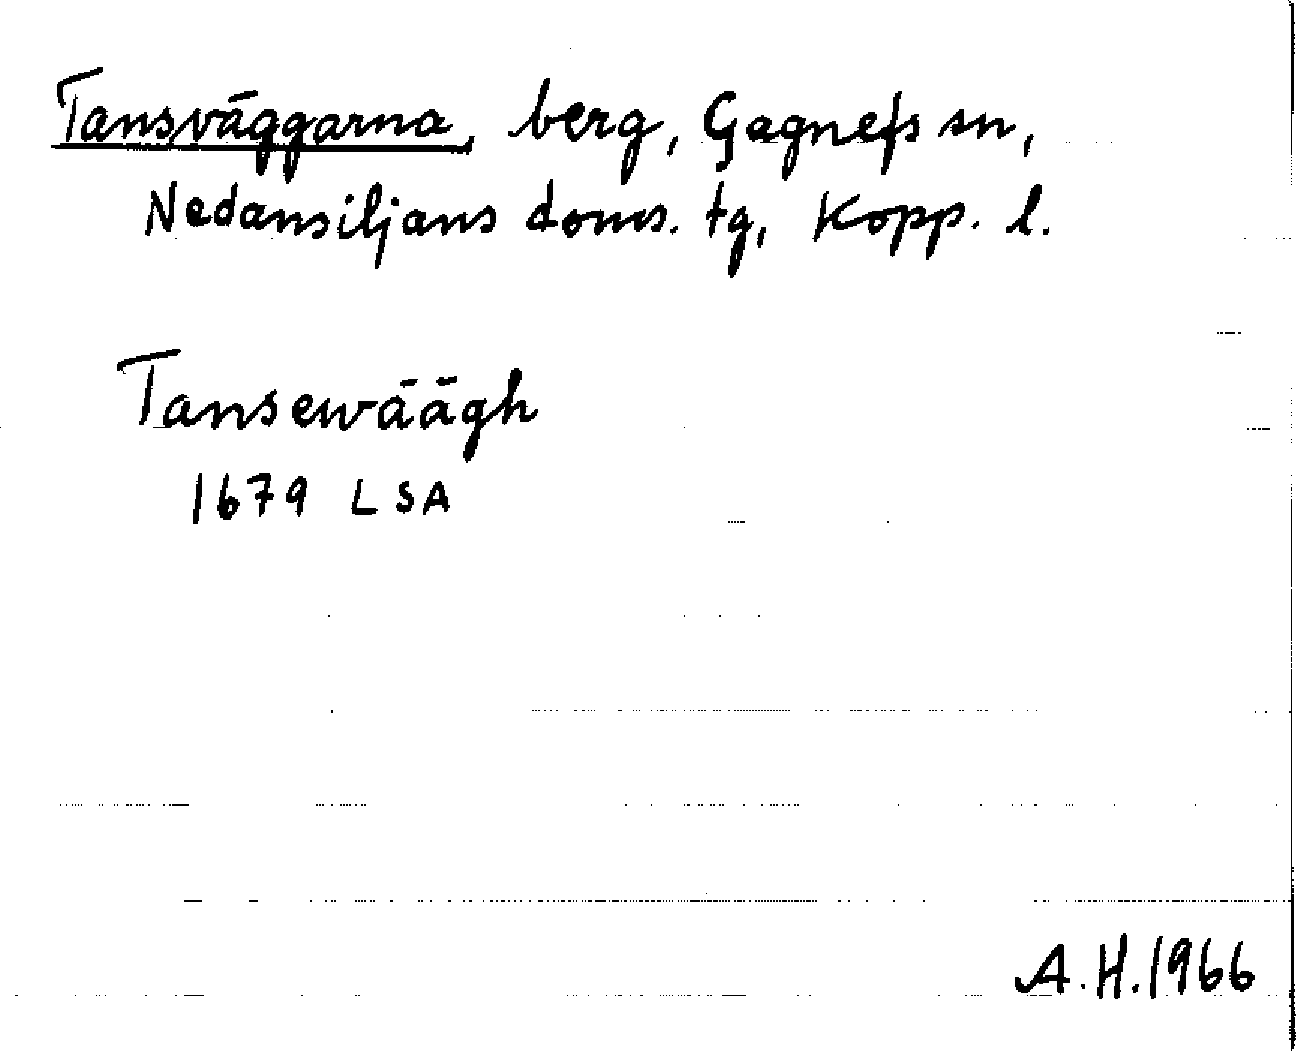 Tansväggarna, berg, Gagnefs sn,
Nedansiljans doms. tg, Kopp. l.
Tansewäägh
1679 LSA
A.H.1966